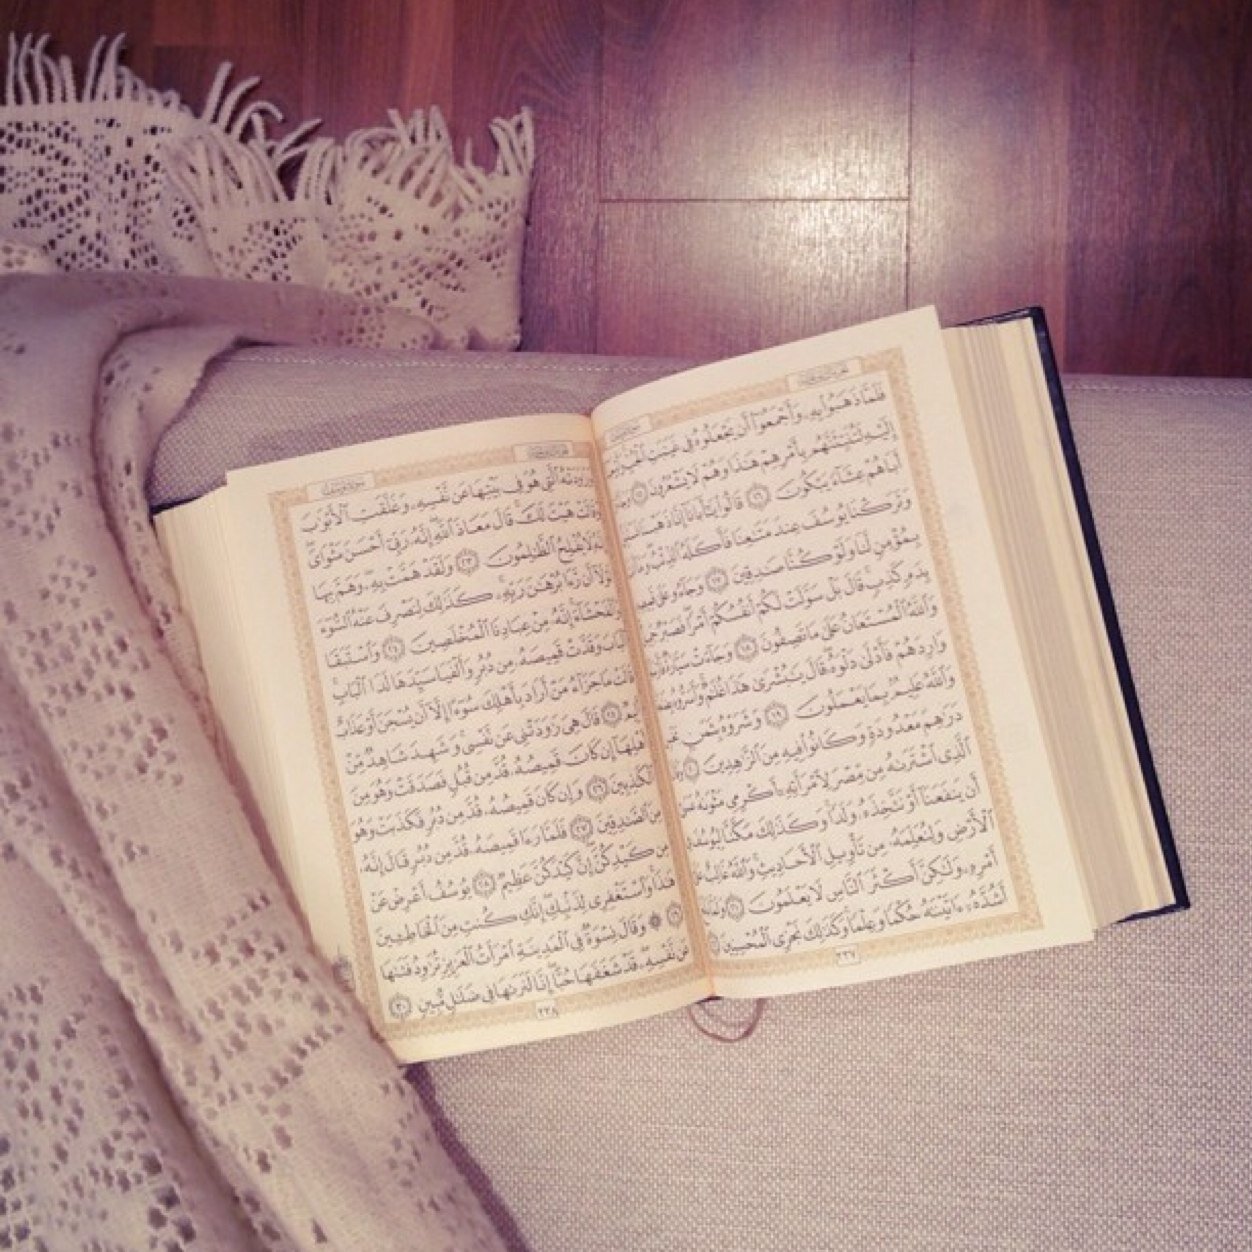 فَلَمَّا ذَهَبُوا۟ بِهِۦ وَأَجْمَعُوٓا۟ أَن يَجْعَلُوهُ فِى غَيَٰبَتِ ٱلْجُبِّ
إِلَيْهِ لَتُنَبِّئَنَّهُم بِأَمْرِهِمْ هَٰذَا وَهُمْ لَا يَشْعُرُونَ ١٥
أَبَاهُمْ عِشَآءً يَبْكُونَ ١٦ قَالُوا۟ يَٰٓأَبَانَآ إِنَّا ذَهَبْنَا
وَتَرَكْنَا يُوسُفَ عِندَ مَتَٰعِنَا فَأَكَلَهُ ٱلذِّئْبُ وَمَآ
بِمُؤْمِنٍ لَّنَا وَلَوْ كُنَّا صَٰدِقِينَ ١٧ وَجَآءُو عَلَىٰ قَمِيصِهِۦ
بِدَمٍ كَذِبٍ قَالَ بَلْ سَوَّلَتْ لَكُمْ أَنفُسُكُمْ أَمْرًا فَصَبْرٌ جَمِيلٌ
وَٱللَّهُ ٱلْمُسْتَعَانُ عَلَىٰ مَا تَصِفُونَ ١٨ وَجَآءَتْ سَيَّارَةٌ
وَارِدَهُمْ فَأَدْلَىٰ دَلْوَهُۥ قَالَ يَٰبُشْرَىٰ هَٰذَا غُلَٰمٌ وَأَسَرُّوهُ
وَٱللَّهُ عَلِيمٌۢ بِمَا يَعْمَلُونَ ١٩ وَشَرَوْهُ بِثَمَنٍۭ
دَرَٰهِمَ مَعْدُودَةٍ وَكَانُوا۟ فِيهِ مِنَ ٱلزَّٰهِدِينَ ٢٠
ٱلَّذِى ٱشْتَرَىٰهُ مِن مِّصْرَ لِٱمْرَأَتِهِۦٓ أَكْرِمِى مَثْوَىٰهُ عَسَىٰٓ
أَن يَنفَعَنَآ أَوْ نَتَّخِذَهُۥ وَلَدًا وَكَذَٰلِكَ مَكَّنَّا لِيُوسُفَ
ٱلْأَرْضِ وَلِنُعَلِّمَهُۥ مِن تَأْوِيلِ ٱلْأَحَادِيثِ وَٱللَّهُ غَالِبٌ عَلَىٰٓ
أَمْرِهِۦ وَلَٰكِنَّ أَكْثَرَ ٱلنَّاسِ لَا يَعْلَمُونَ ٢١ وَلَمَّا بَلَغَ
أَشُدَّهُۥٓ ءَاتَيْنَٰهُ حُكْمًا وَعِلْمًا وَكَذَٰلِكَ نَجْزِى ٱلْمُحْسِنِينَ
٢٣٧
سورة يوسف
وَرَٰوَدَتْهُ ٱلَّتِى هُوَ فِى بَيْتِهَا عَن نَّفْسِهِۦ وَغَلَّقَتِ ٱلْأَبْوَٰبَ
وَقَالَتْ هَيْتَ لَكَ قَالَ مَعَاذَ ٱللَّهِ إِنَّهُۥ رَبِّىٓ أَحْسَنَ مَثْوَاىَ
إِنَّهُۥ لَا يُفْلِحُ ٱلظَّٰلِمُونَ ٢٣ وَلَقَدْ هَمَّتْ بِهِۦ وَهَمَّ بِهَا
لَوْلَآ أَن رَّءَا بُرْهَٰنَ رَبِّهِۦ كَذَٰلِكَ لِنَصْرِفَ عَنْهُ ٱلسُّوٓءَ
وَٱلْفَحْشَآءَ إِنَّهُۥ مِنْ عِبَادِنَا ٱلْمُخْلَصِينَ ٢٤ وَٱسْتَبَقَا
ٱلْبَابَ وَقَدَّتْ قَمِيصَهُۥ مِن دُبُرٍ وَأَلْفَيَا سَيِّدَهَا لَدَا ٱلْبَابِ
قَالَتْ مَا جَزَآءُ مَنْ أَرَادَ بِأَهْلِكَ سُوٓءًا إِلَّآ أَن يُسْجَنَ أَوْ عَذَابٌ
أَلِيمٌ ٢٥ قَالَ هِىَ رَٰوَدَتْنِى عَن نَّفْسِى وَشَهِدَ شَاهِدٌ مِّنْ
أَهْلِهَآ إِن كَانَ قَمِيصُهُۥ قُدَّ مِن قُبُلٍ فَصَدَقَتْ وَهُوَ مِنَ
ٱلْكَٰذِبِينَ ٢٦ وَإِن كَانَ قَمِيصُهُۥ قُدَّ مِن دُبُرٍ فَكَذَبَتْ وَهُوَ
مِنَ ٱلصَّٰدِقِينَ ٢٧ فَلَمَّا رَءَا قَمِيصَهُۥ قُدَّ مِن دُبُرٍ قَالَ إِنَّهُۥ
مِن كَيْدِكُنَّ إِنَّ كَيْدَكُنَّ عَظِيمٌ ٢٨ يُوسُفُ أَعْرِضْ عَنْ
هَٰذَا وَٱسْتَغْفِرِى لِذَنۢبِكِ إِنَّكِ كُنتِ مِنَ ٱلْخَاطِـِٔينَ
٢٩ ۞ وَقَالَ نِسْوَةٌ فِى ٱلْمَدِينَةِ ٱمْرَأَتُ ٱلْعَزِيزِ تُرَٰوِدُ فَتَىٰهَا
عَن نَّفْسِهِۦ قَدْ شَغَفَهَا حُبًّا إِنَّا لَنَرَىٰهَا فِى ضَلَٰلٍ مُّبِينٍ ٣٠
٢٣٨